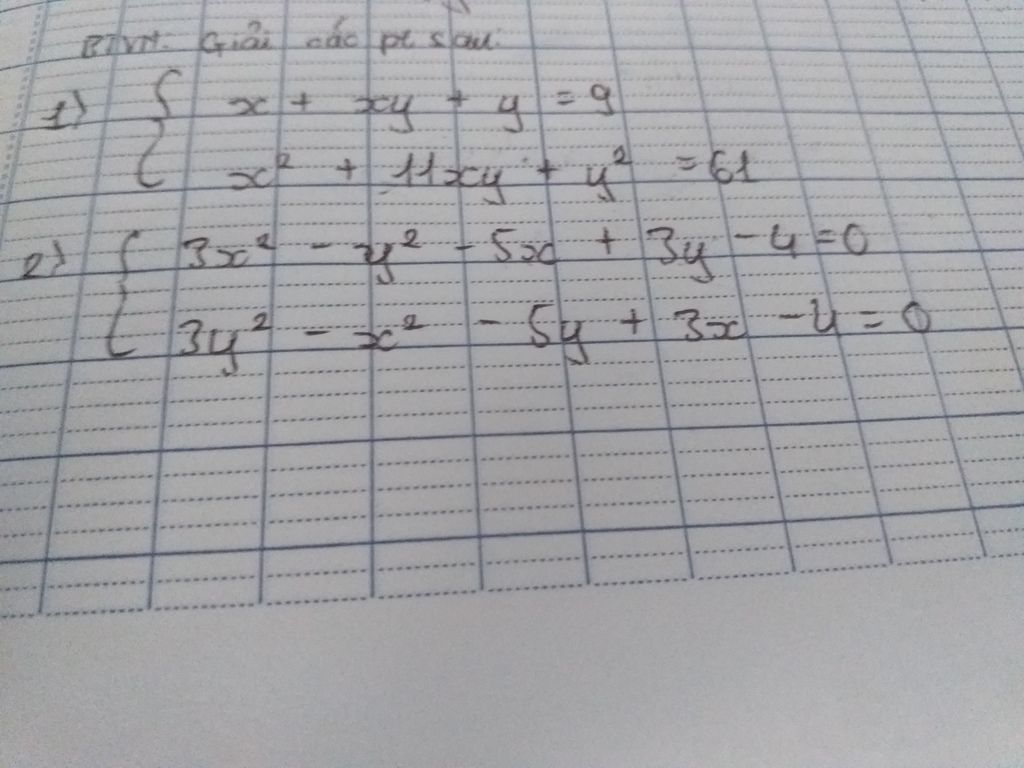 BTVN: Giải các pt sau:
1) { x + xy + y = 9
x² + 11xy + y² = 61
2) { 3x² - y² - 5x + 3y - 4 = 0
3y² - x² - 5y + 3x - 4 = 0